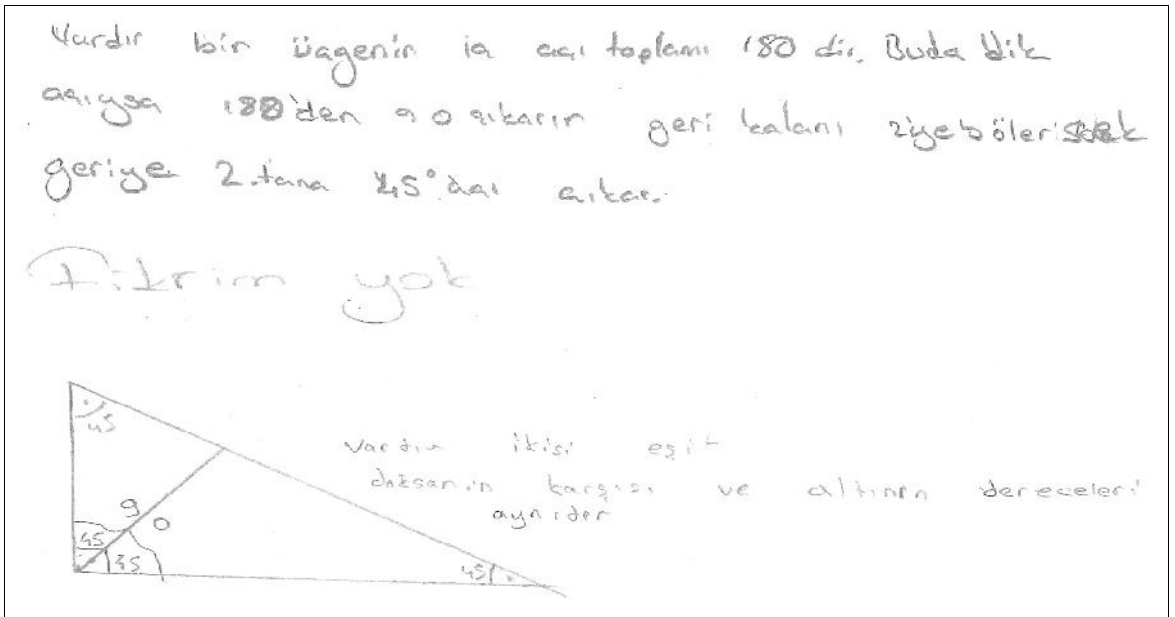 Vardır bir üçgenin iç açı toplamı 180 dir. Buda dik
açıysa 180'den 90 çıkarır geri kalanı 2'ye böler
geriye 2.tana 45° açı çıkar.
Fikrim yok
45
vardır ikisi eşit
doksanın karşısı ve altının dereceleri
aynıdır
90
45
45
45